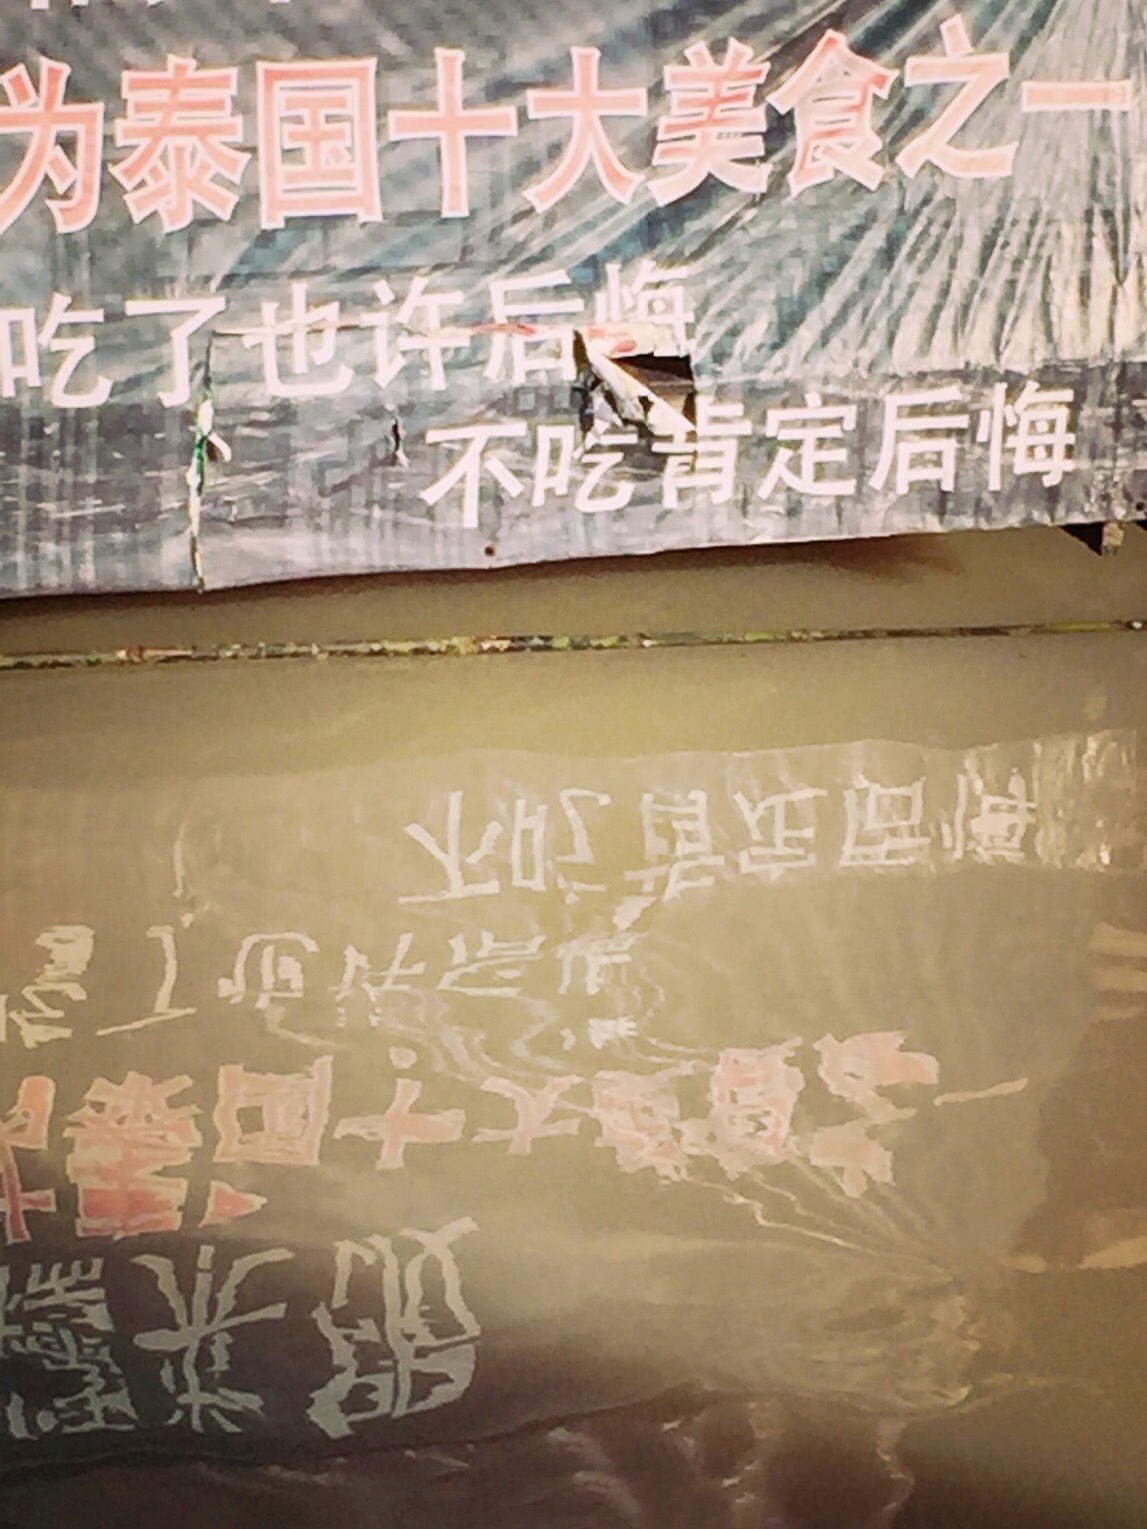 为泰国十大美食之一
吃了也许后悔
不吃肯定后悔